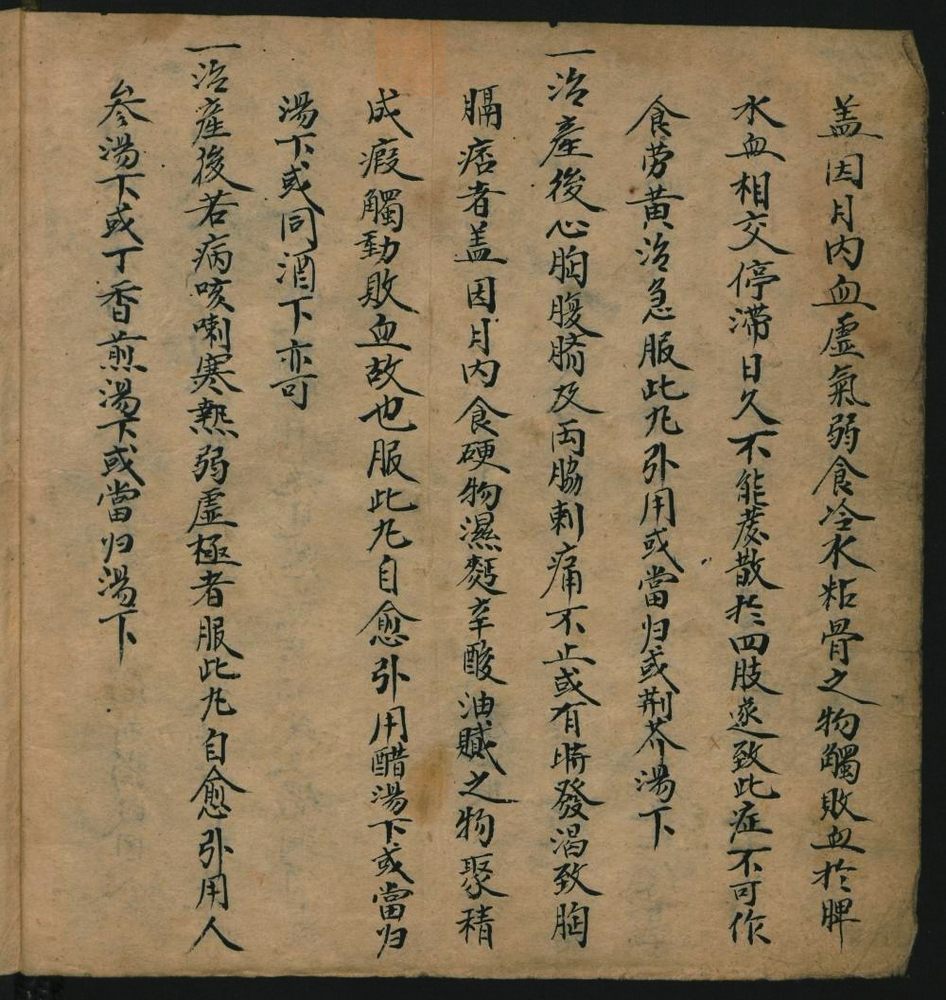 盖因月内血虛氣弱食冷水粘骨之物觸敗血扵脾
水血相交停滞日久不能發散扵四肢遂致此症不可作
食劳黄治急服此九引用或當归或荆芥湯下
一治產後心胸腹臍及両脇刺痛不止或有時發渴致胸
膈痞者盖因月内食硬物濕麫辛酸油膩之物聚積
成瘕觸動敗血故也服此九自愈引用醋湯下或當归
湯下或同酒下亦可
一治產後若病咳喇寒熱弱虛極者服此九自愈引用人
参湯下或丁香煎湯下或當归湯下